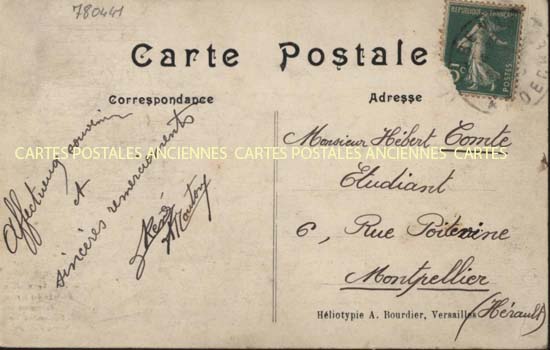 780441
RÉPUBLIQUE FRANÇAISE
5c
POSTES
Carte Postale
Correspondance
Adresse
Affectueux souvenir
et
sincères remerciements
René
Monsieur Hébert Comte
Etudiant
6, Rue Poitevine
Montpellier
(Hérault)
Héliotypie A. Bourdier, Versailles
CARTES POSTALES ANCIENNES CARTES POSTALES ANCIENNES